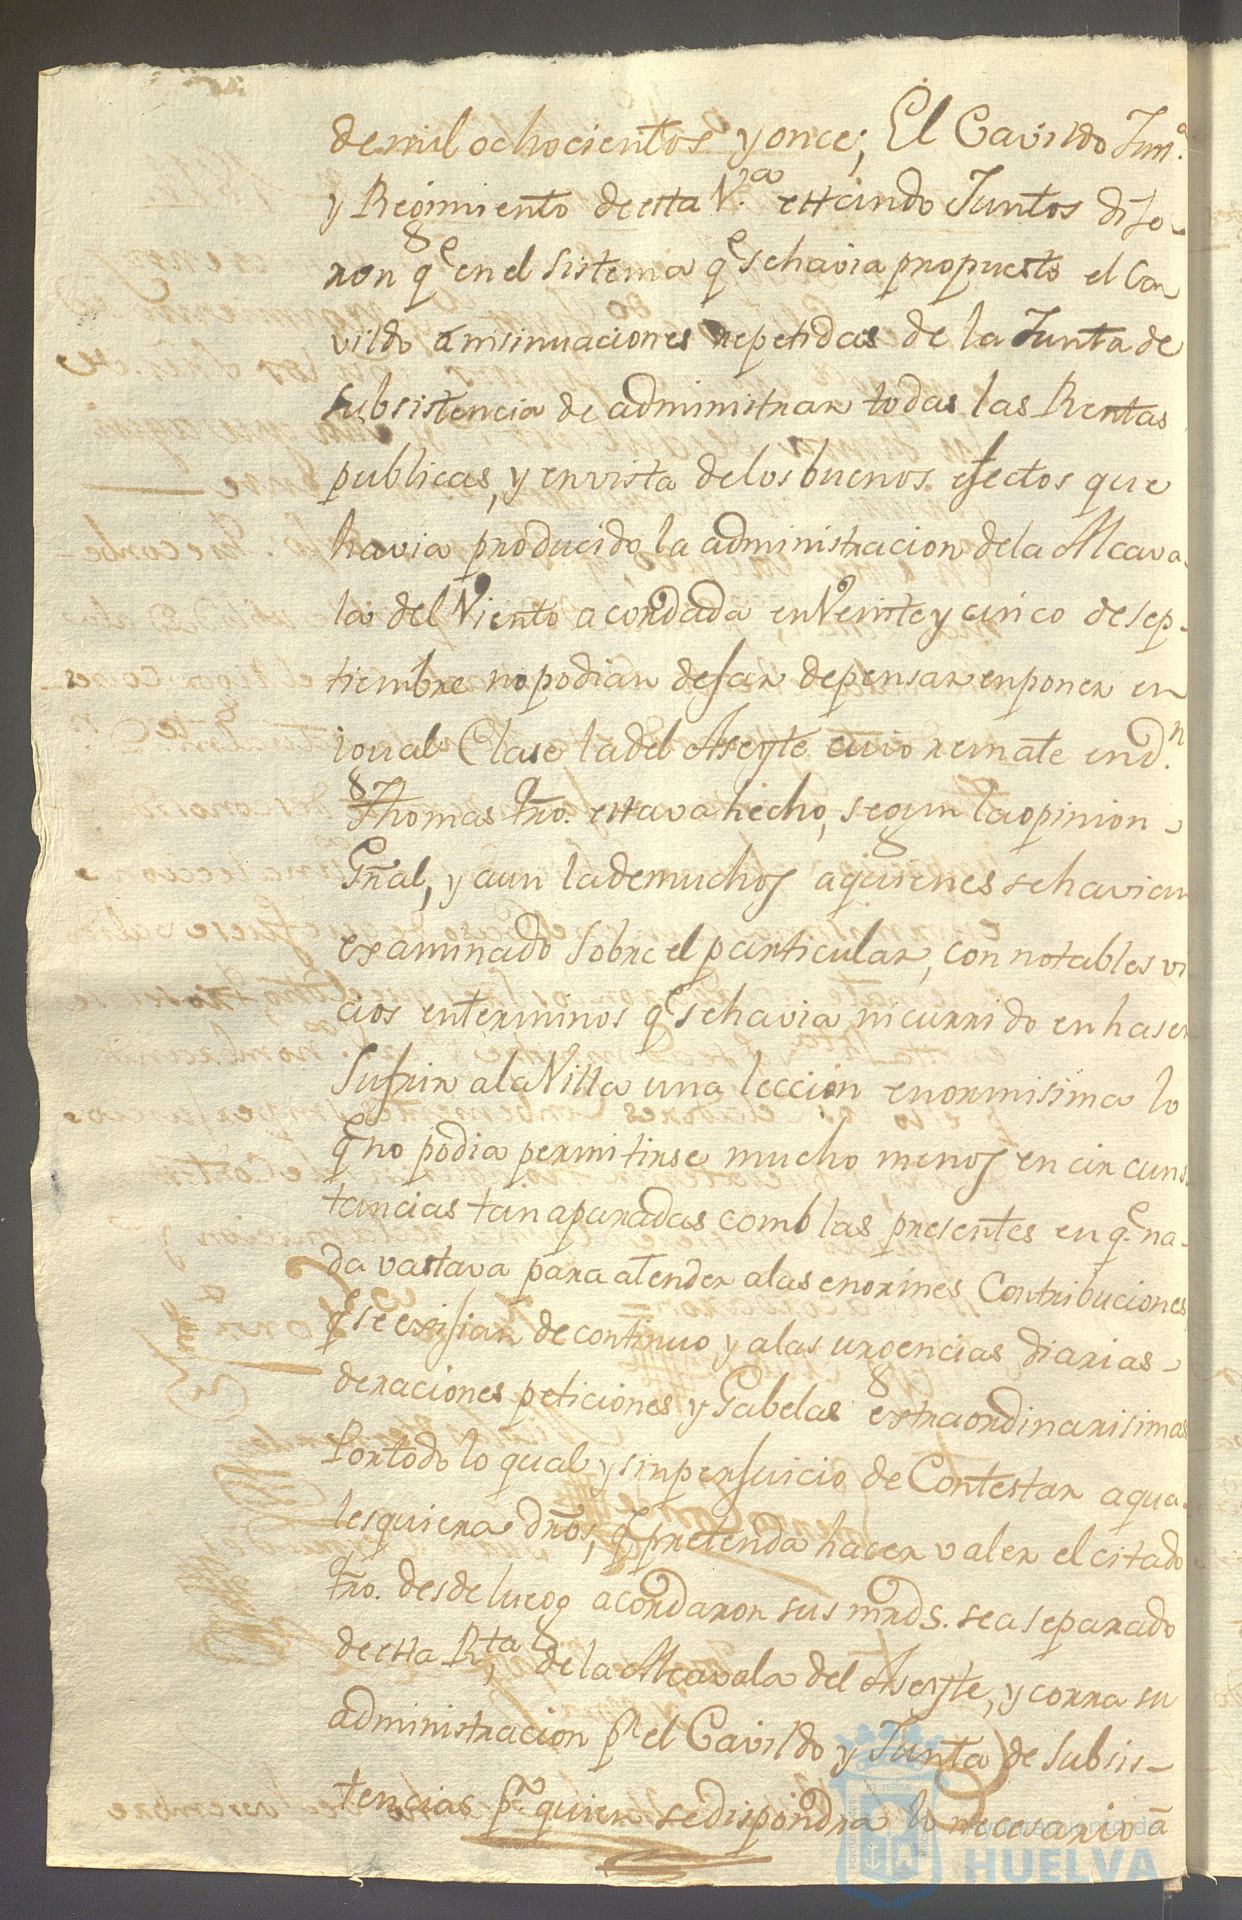 de mil ochocientos y once; El Cavildo Jus.ª
y Regimiento de esta V.ª estando Juntos dixe-
ron q.e en el sistema q.e se havia propuesto el Ca
vildo á insinuaciones repetidas de la Junta de
Subsistencia de administrar todas las Rentas
publicas, y en vista de los buenos efectos que
havia producido la administracion de la Alcava
la del Viento acordada en Veinte y cinco de sep-
tiembre no podian dejar de pensar en poner en
igual Clase la del Aseyte cuio remate en d.n
Thomas tro. estava hecho, segun la opinion
Gñal, y aun la de muchos a quienes se havian
examinado sobre el particular, con notables vi
cios en terminos q.e se havia incurrido en haser
Sufrir a la Villa una leccion enormisima lo
q.e no podia permitirse mucho menos en circuns
tancias tan apuradas como las presentes en q.e na-
da vastava para atender a las enormes Contribuciones
q.e se exijian de continuo y a las urgencias diarias
de raciones peticiones y Gabelas extraordinarisimas
Por todo lo qual y sin perjuicio de Contestar a qua-
lesquiera dr̃os, q.e pretenda hacer valer el citado
tro. desde luego acordaron sus mrds. sea separado
de esta R.ta de la Alcavala del Aseyte, y corra su
administracion p.r el Cavildo y Junta de Subsis-
tencias p.r quien se dispondra lo necesario á
Ayuntamiento de
HUELVA